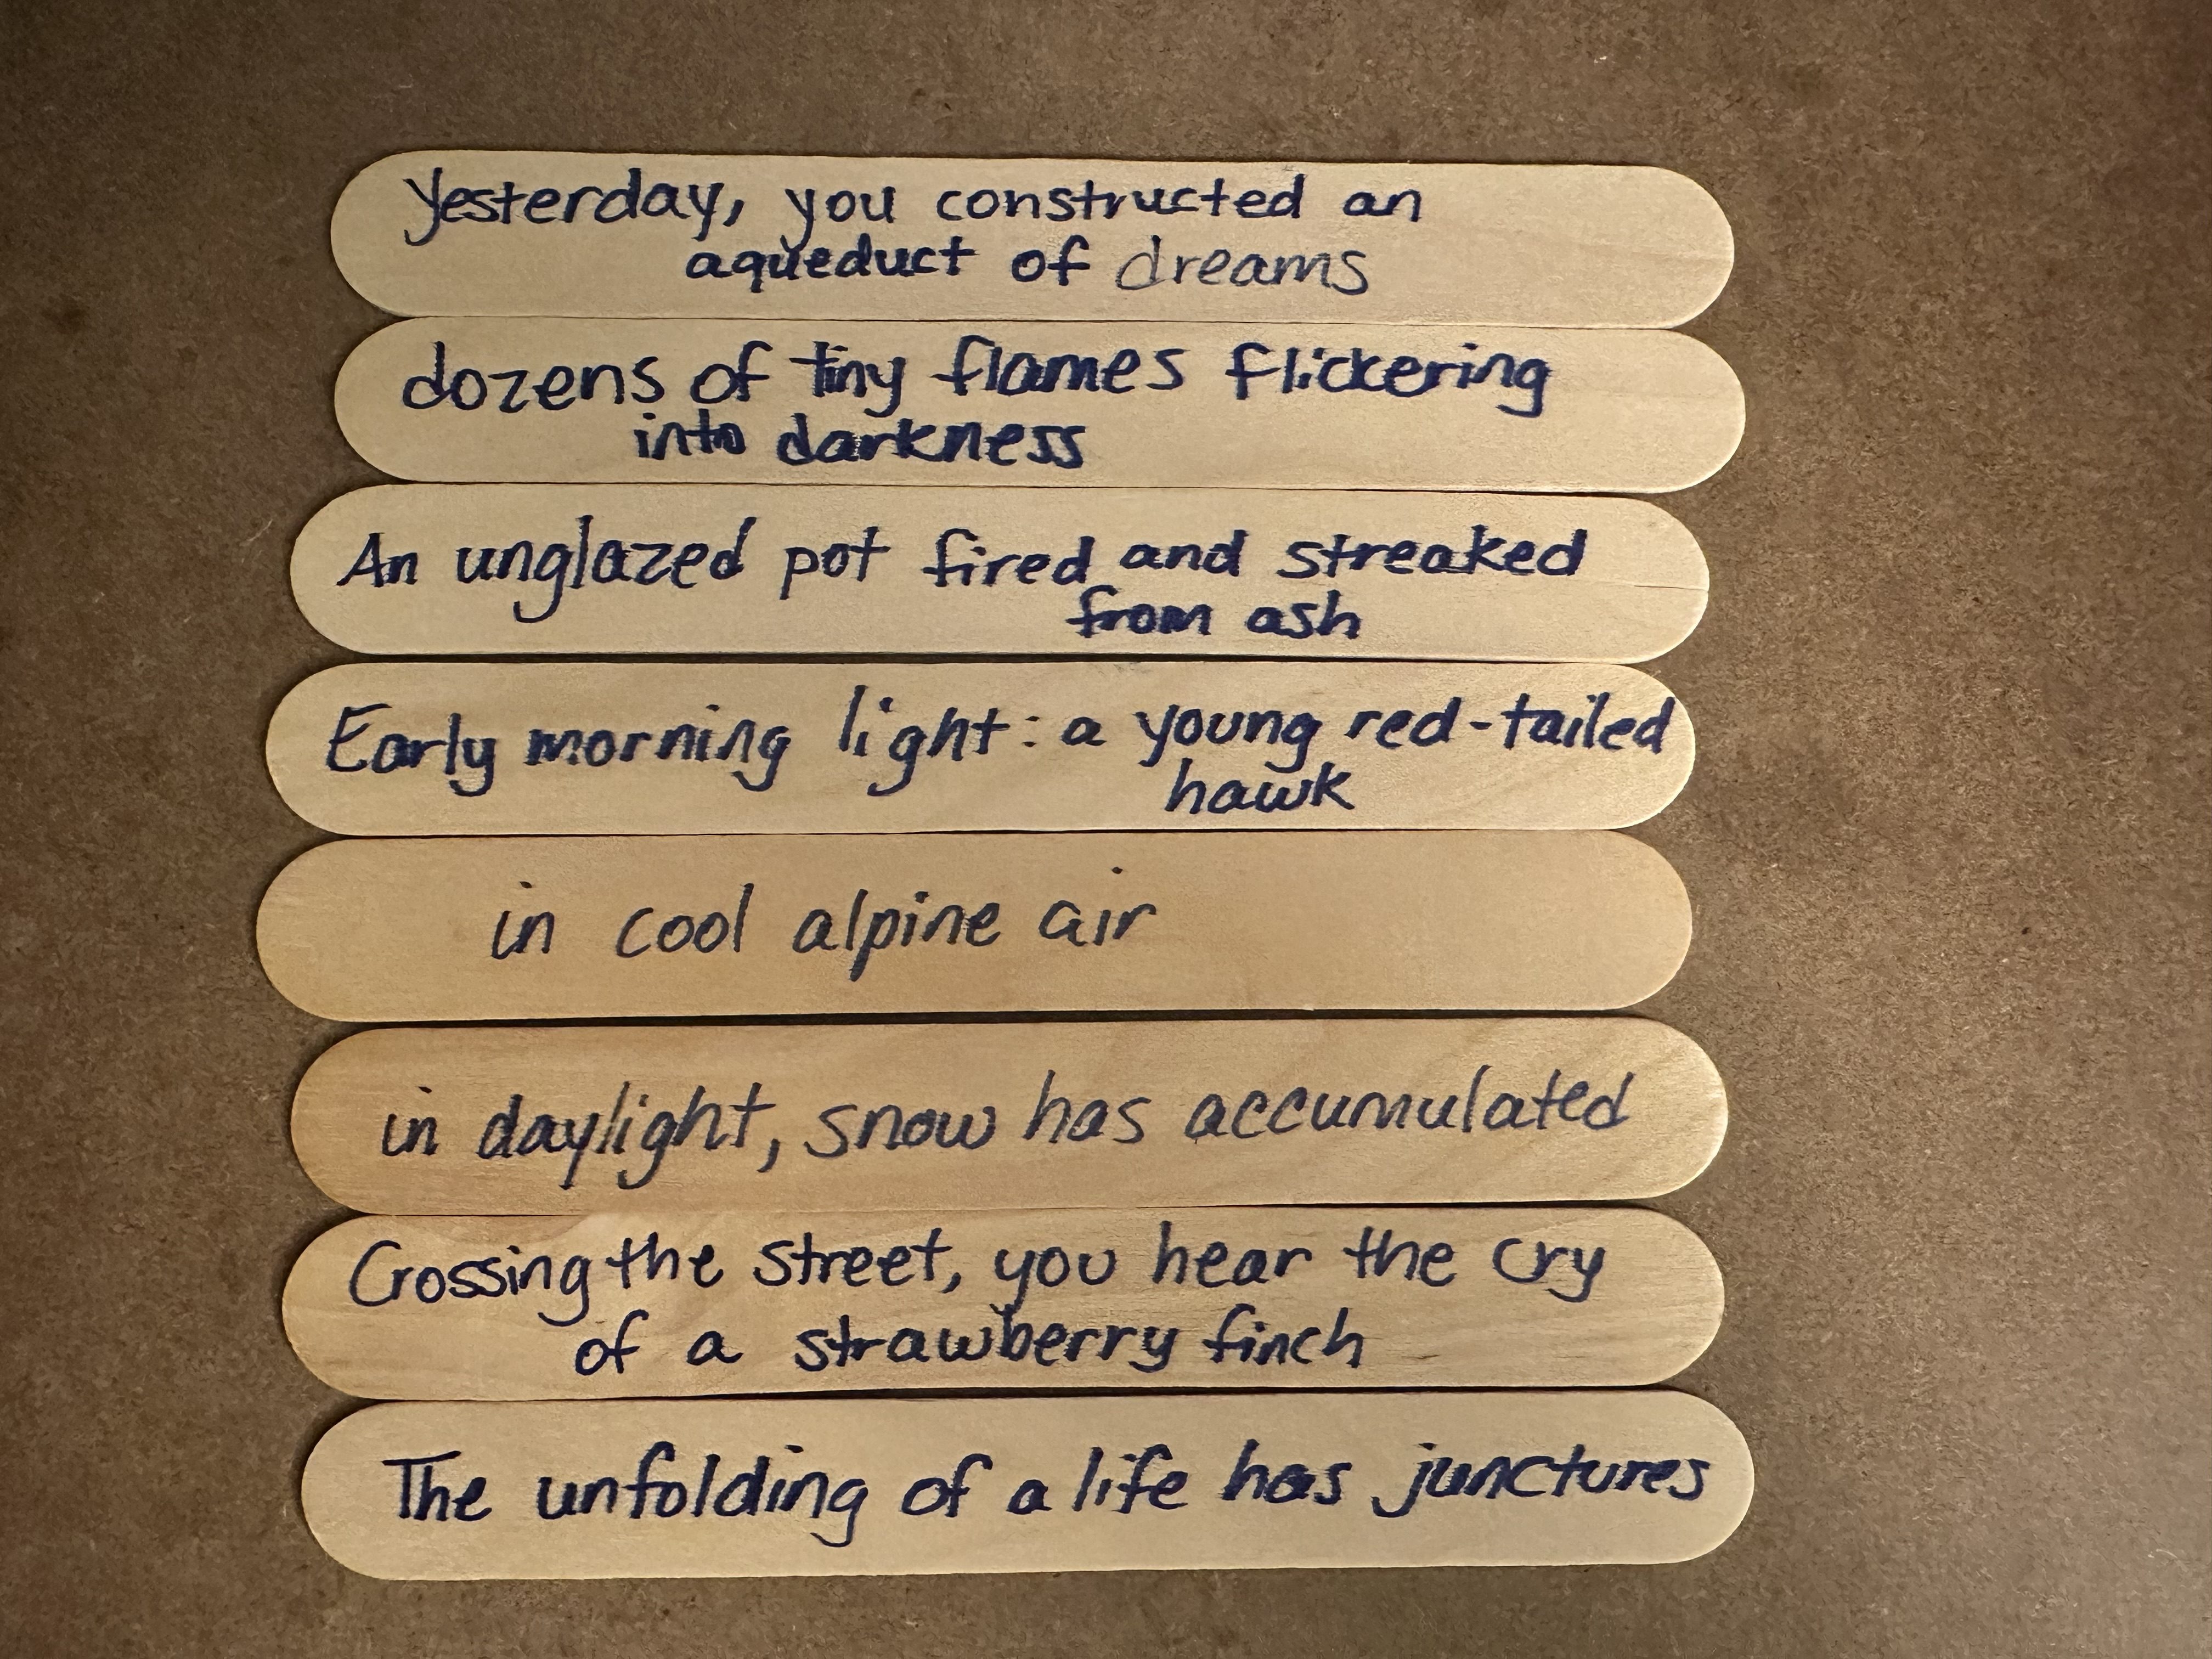 Yesterday, you constructed an
aqueduct of dreams
dozens of tiny flames flickering
into darkness
An unglazed pot fired and streaked
from ash
Early morning light: a young red-tailed
hawk
in cool alpine air
in daylight, snow has accumulated
Crossing the street, you hear the cry
of a strawberry finch
The unfolding of a life has junctures